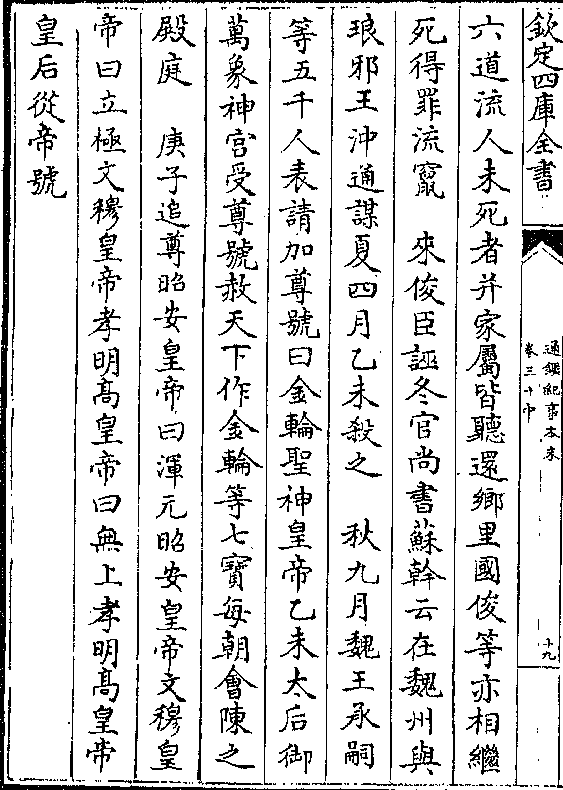 欽定四庫全書
通鑑紀事本末
卷三十中
十九
六道流人未死者并家屬皆聽還鄉里國俊等亦相繼
死得罪流竄　來俊臣誣冬官尚書蘇幹云在魏州與
琅邪王沖通謀夏四月乙未殺之　秋九月魏王承嗣
等五千人表請加尊號曰金輪聖神皇帝乙未太后御
萬象神宮受尊號赦天下作金輪等七寶每朝會陳之
殿庭　庚子追尊昭安皇帝曰渾元昭安皇帝文穆皇
帝曰立極文穆皇帝孝明髙皇帝曰無上孝明髙皇帝
皇后從帝號